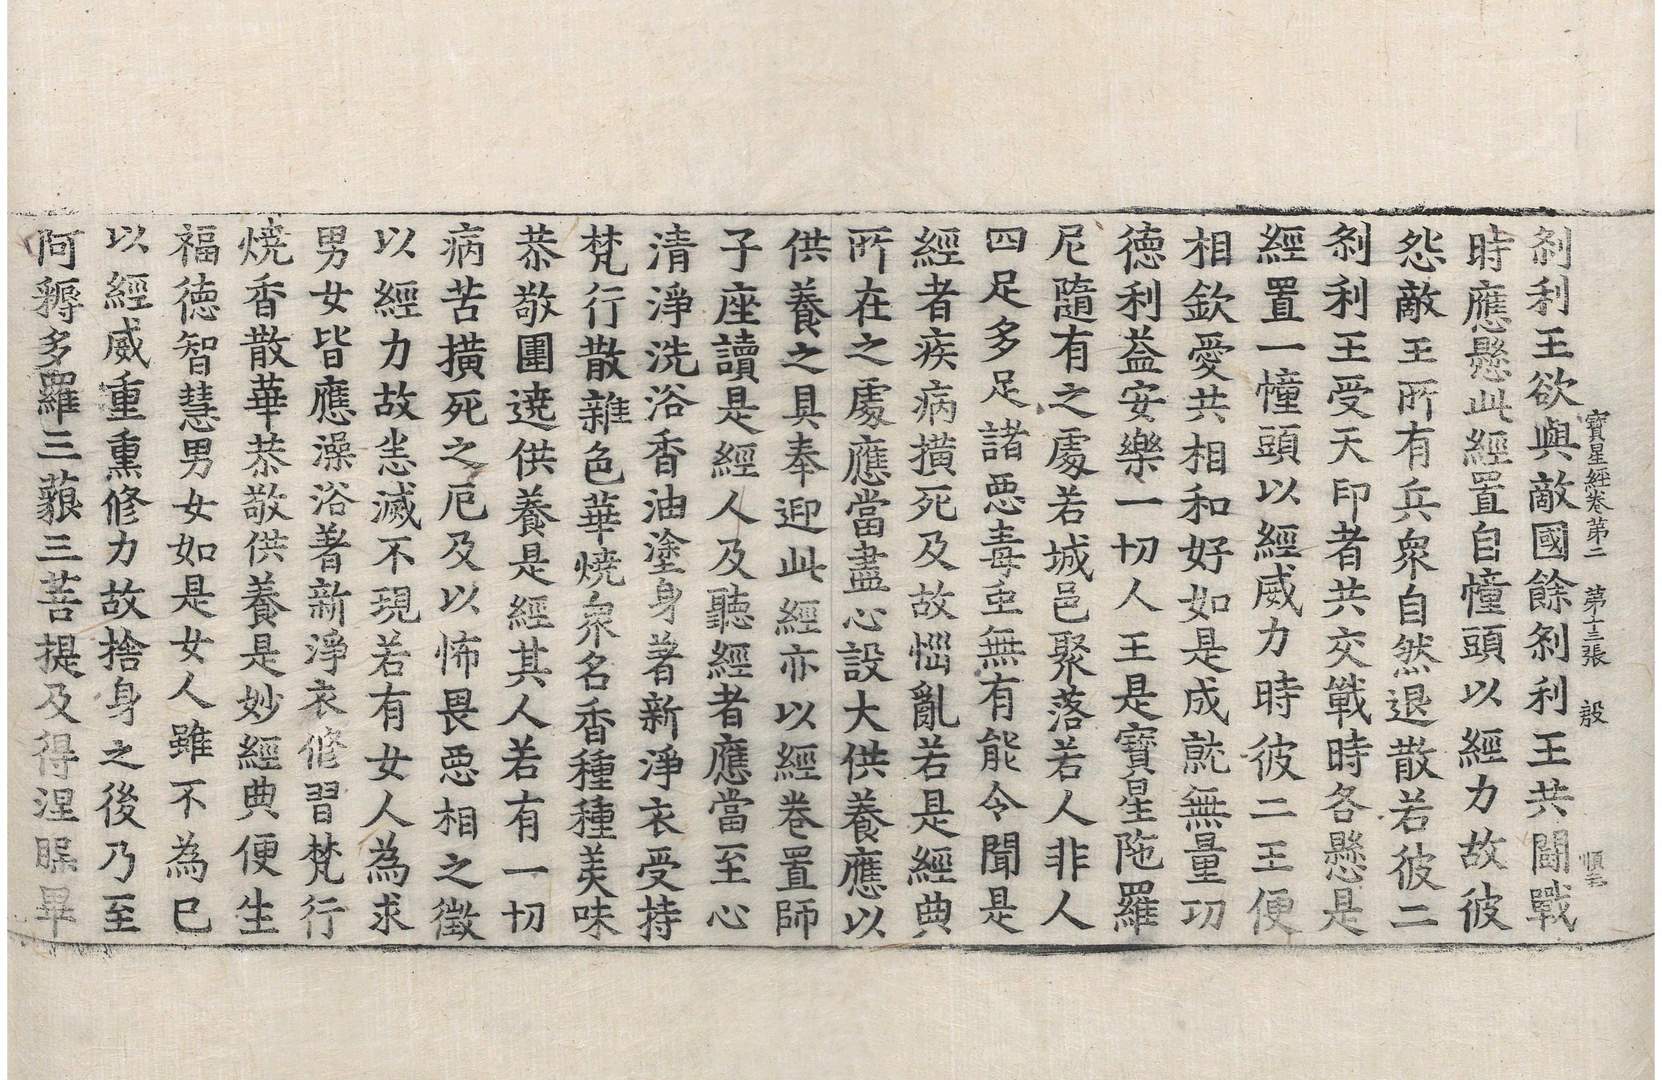 寶星經卷第二 第十三張 殷
刹利王欲與敵國餘刹利王共鬪戰
時應懸此經置自幢頭以經力故彼
怨敵王所有兵衆自然退散若彼二
刹利王受天印者共交戰時各懸是
經置一幢頭以經威力時彼二王便
相欽愛共相和好如是成就無量功
德利益安樂一切人王是寶星陁羅
尼隨有之處若城邑聚落若人非人
四足多足諸惡毒虫無有能令聞是
經者疾病撗死及故惱亂若是經典
所在之處應當盡心設大供養應以
供養之具奉迎此經亦以經卷置師
子座讀是經人及聽經者應當至心
清淨洗浴香油塗身著新淨衣受持
梵行散雜色華燒衆名香種種美味
恭敬圍遶供養是經其人若有一切
病苦撗死之厄及以怖畏惡相之徵
以經力故悉滅不現若有女人為求
男女皆應澡浴著新淨衣修習梵行
燒香散華恭敬供養是妙經典便生
福德智慧男女如是女人雖不為已
以經威重熏修力故捨身之後乃至
阿耨多羅三藐三菩提及得涅槃畢